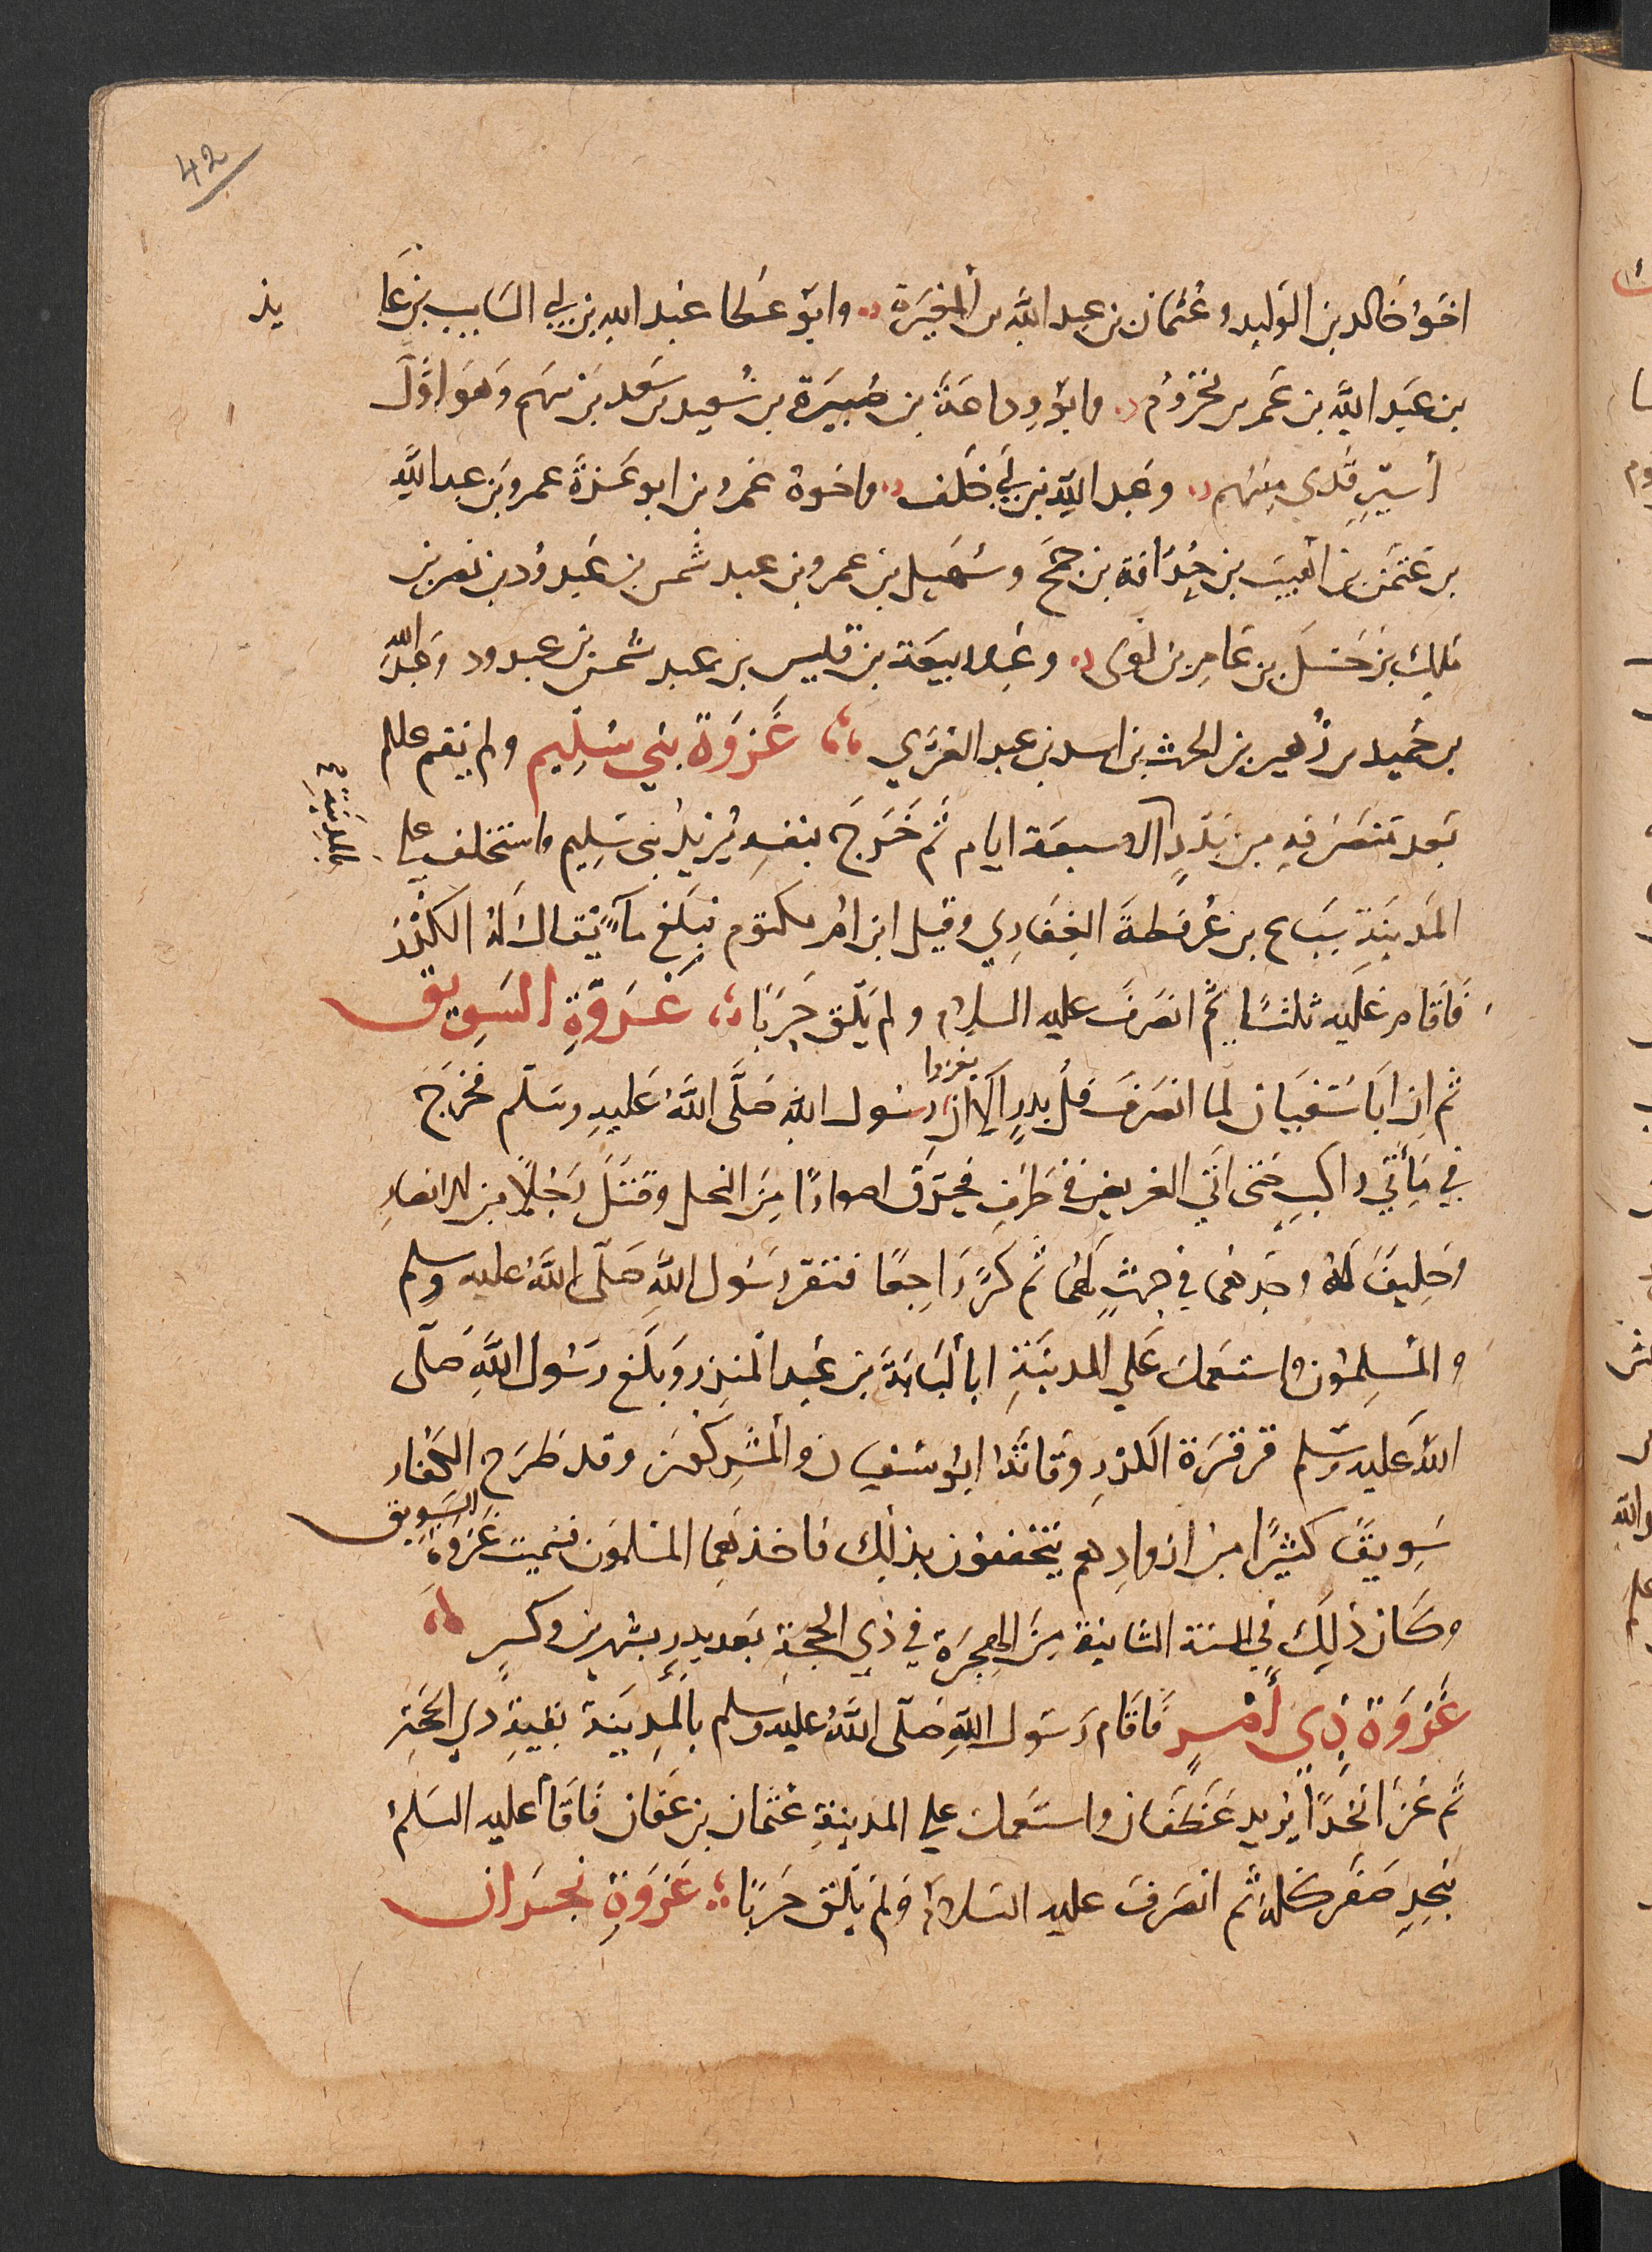 42
اخو خالد بن الوليد وعثمان بن عبد الله بن المغيرة وابو عطا عبد الله بن ابي السايب بن عا يذ
بن عبد الله بن عمر بن مخزوم وابو وداعة بن صبيرة بن سعيد بن سعد بن سهم وهو اول
أسير فدى منهم وعبد الله بن ابي خلف واخوه عمرو بن ابو عزة عمرو بن عبد الله
بن عثمن بن اهيب بن حذافة بن جمح وسهيل بن عمرو بن عبد شمس بن عبد ود بن نصر بن
ملك بن حسل بن عامر بن لوى وعبد بن زمعة بن قيس بن عبد شمس بن عبد ود وعبد الله
بن حميد بن زهير بن الحرث بن اسد بن عبد العزي غزوة بني سليم ولم يقم عللم
بالمدينة
بعد منصرفه من بدر الا سبعة ايام ثم خرج بنفسه يريد بنى سليم واستخلف علي
المدينة سباع بن عرفطة الغفاري وقيل ابن ام مكتوم فبلغ مآءً يقال له الكدر
فاقام عليه ثلثا ثم انصرف عليه السلام ولم يلق حربا غزوة السويق
ثم ان ابا سفيان لما انصرف فل بدر الا ان يغزوا رسول الله صلى الله عليه وسلم فخرج
في مأتي راكب حتى اتي العريض في طرف فحرق اصوارا من النخل وقتل رجلا من الانصار
وحليف له وجدهما في حرث لهما ثم كر راجعا فنفر رسول الله صلى الله عليه وسلم
والمسلمون واستعمل علي المدينة ابا لبابة بن عبد المنذر وبلغ رسول الله صلى
الله عليه وسلم قرقرة الكدر وفاته ابو سفيان والمشركون وقد طرح الكفار
سويق كثيرا من ازوادهم يتخففون بذلك فاخذهما المسلمون فسميت غزوة السويق
وكان ذلك في السنة الثانية من الهجرة في ذي الحجة بعد بدر بشهرين وكسر
غزوة ذي أمر فاقام رسول الله صلى الله عليه وسلم بالمدينة بقية ذي الحجة
ثم غزا نجدا يريد غطفان واستعمل علي المدينة عثمان بن عفان فاقام عليه السلم
بنجد صفر كله ثم انصرف عليه السلام ولم يلق حربا غزوة نجران